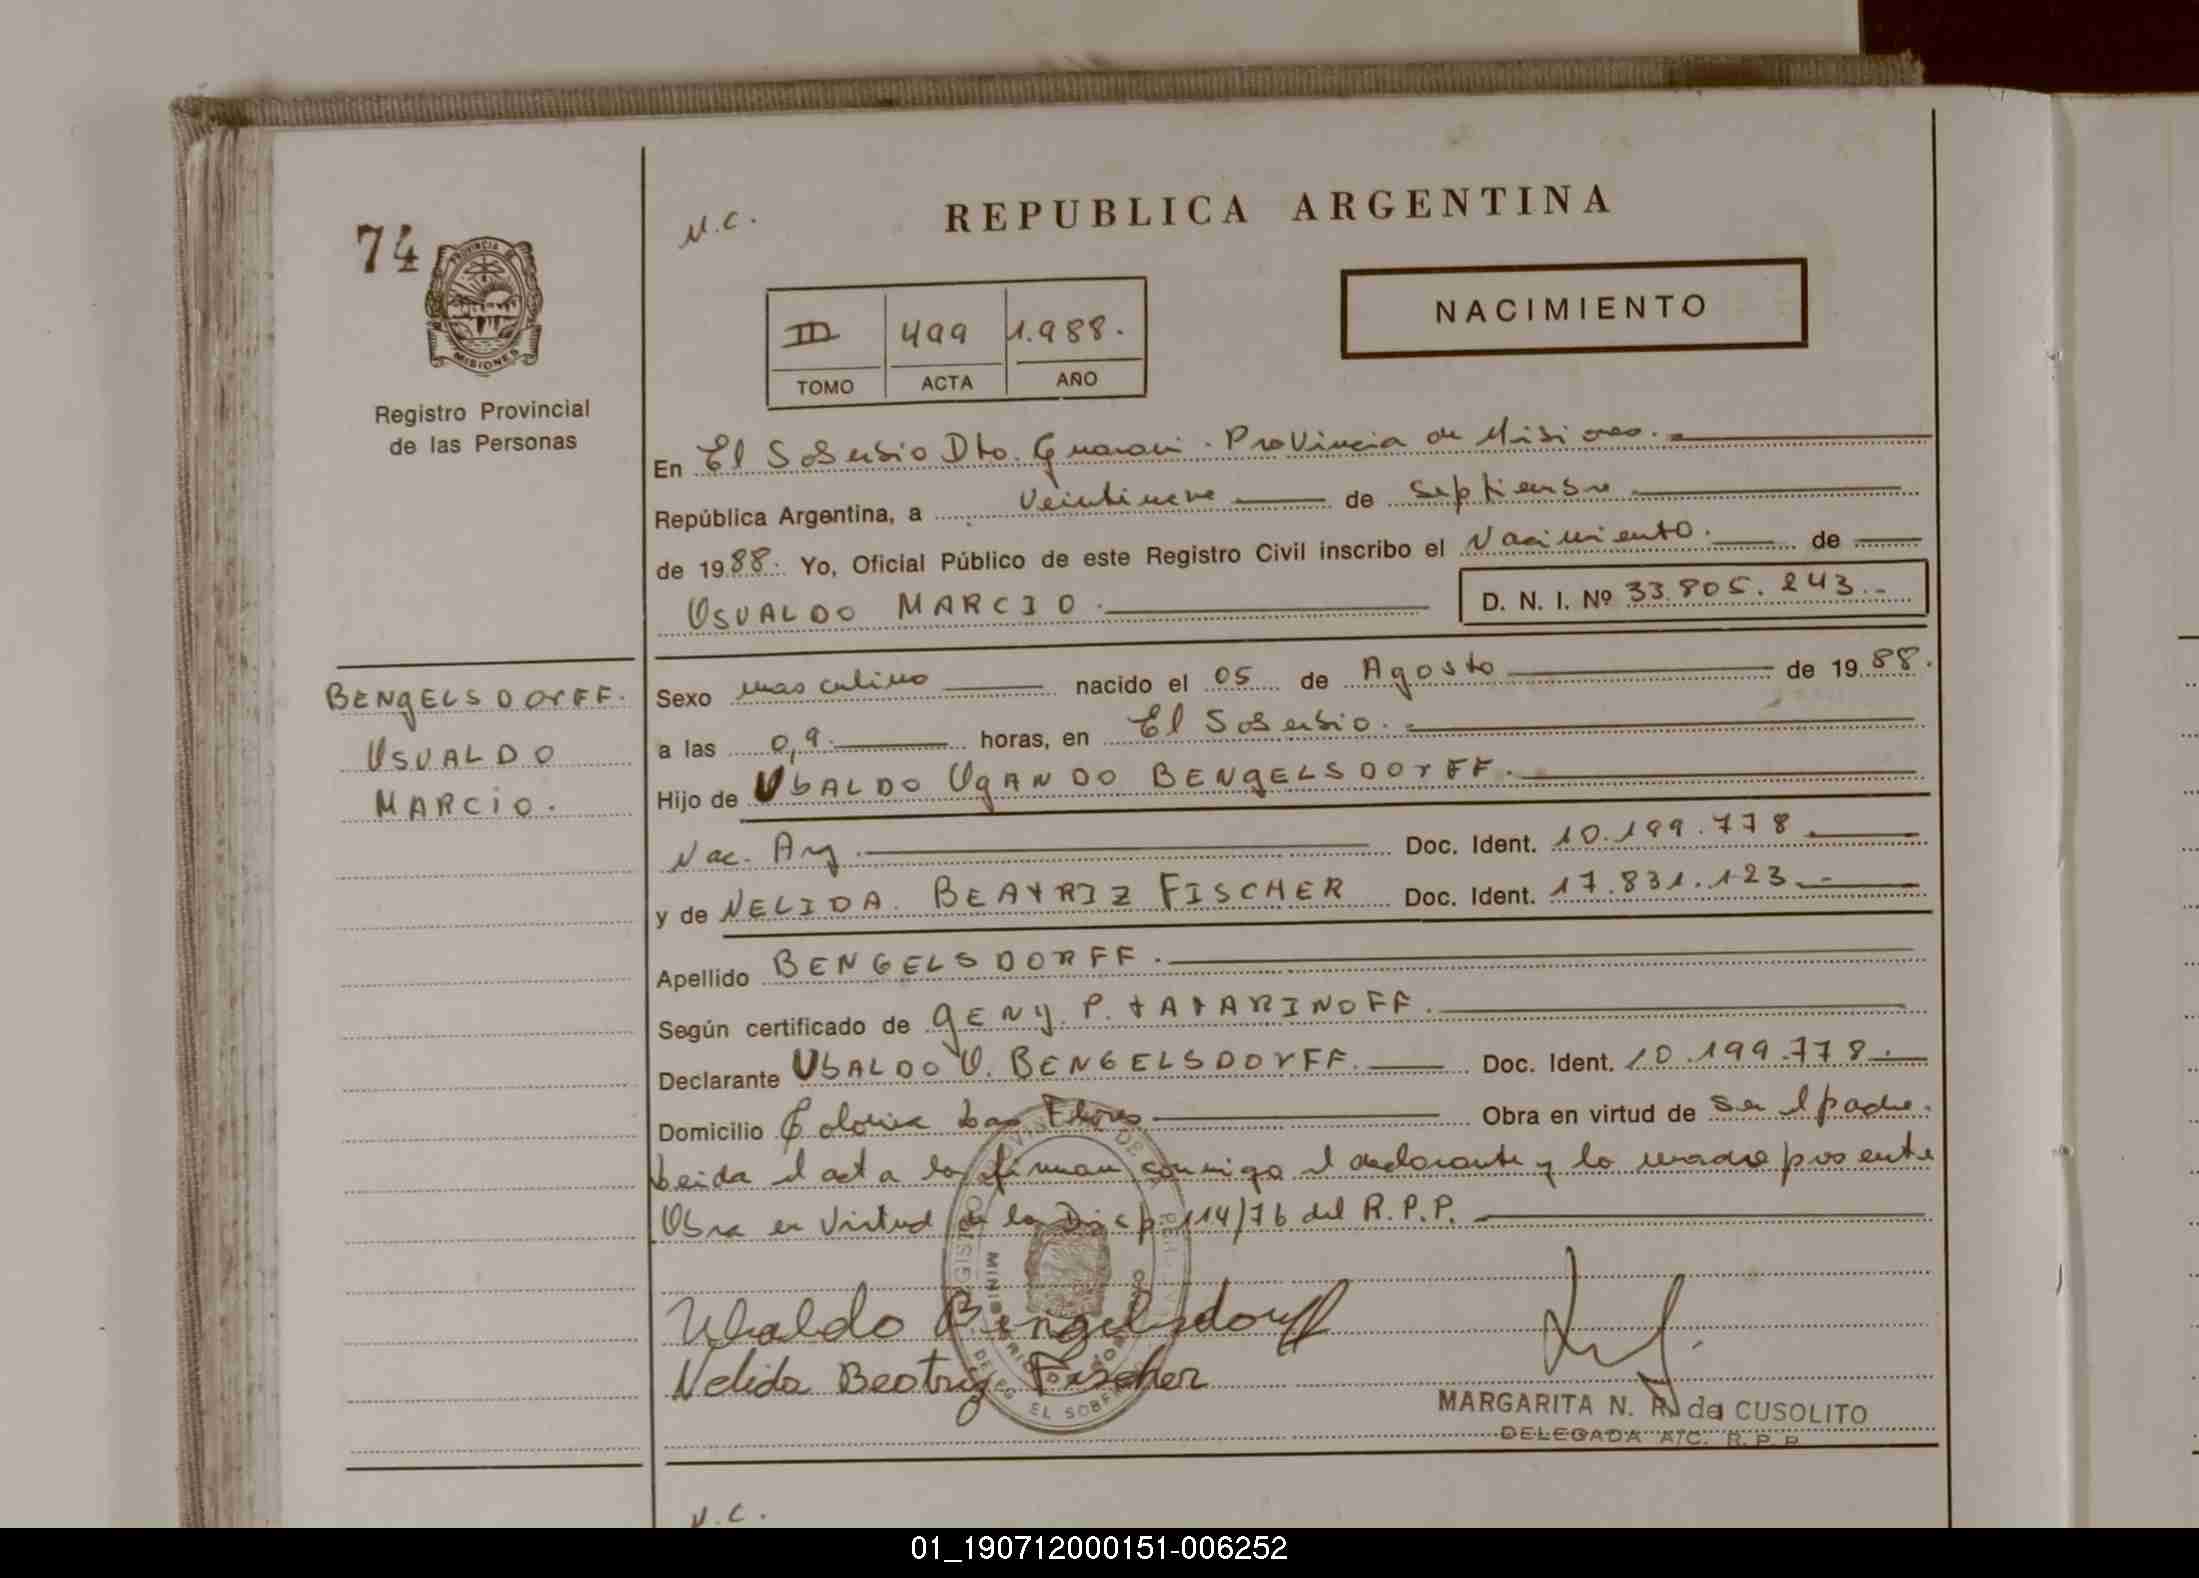 74
PROVINCIA DE
MISIONES
Registro Provincial
de las Personas
N.C.
REPUBLICA ARGENTINA
NACIMIENTO
III 499 1.988.
TOMO ACTA AÑO
En El Soberbio Dto. Guarani. Provincia de Misiones.
República Argentina, a Veintinueve de Septiembre
de 1988. Yo, Oficial Público de este Registro Civil inscribo el Nacimiento. de
USUALDO MARCIO. D. N. I. Nº 33.805.243.-
BENGELSDORFF.
USUALDO
MARCIO.
Sexo masculino nacido el 05 de Agosto de 1988.
a las 0,9. horas, en El Soberbio.
Hijo de UBALDO UGANDO BENGELSDORFF.
Nac. Arg. Doc. Ident. 10.199.778
y de NELIDA. BEATRIZ FISCHER Doc. Ident. 17.831.123.-
Apellido BENGELSDORFF.
Según certificado de GENY. P. TATARINOFF.
Declarante UBALDO U. BENGELSDORFF. Doc. Ident. 10.199.778.
Domicilio Colonia Las Flores Obra en virtud de Ser el padre.
Leida el acta la firman conmigo el declarante y la madre presente
Obra en Virtud de la Disp. 114/76 del R.P.P.
Ubaldo Bengelsdorff
Nelida Beatriz Fischer
EL SOBERBIO
MARGARITA N. R. de CUSOLITO
DELEGADA A/C. R. P. P.
N.C.
01_190712000151-006252